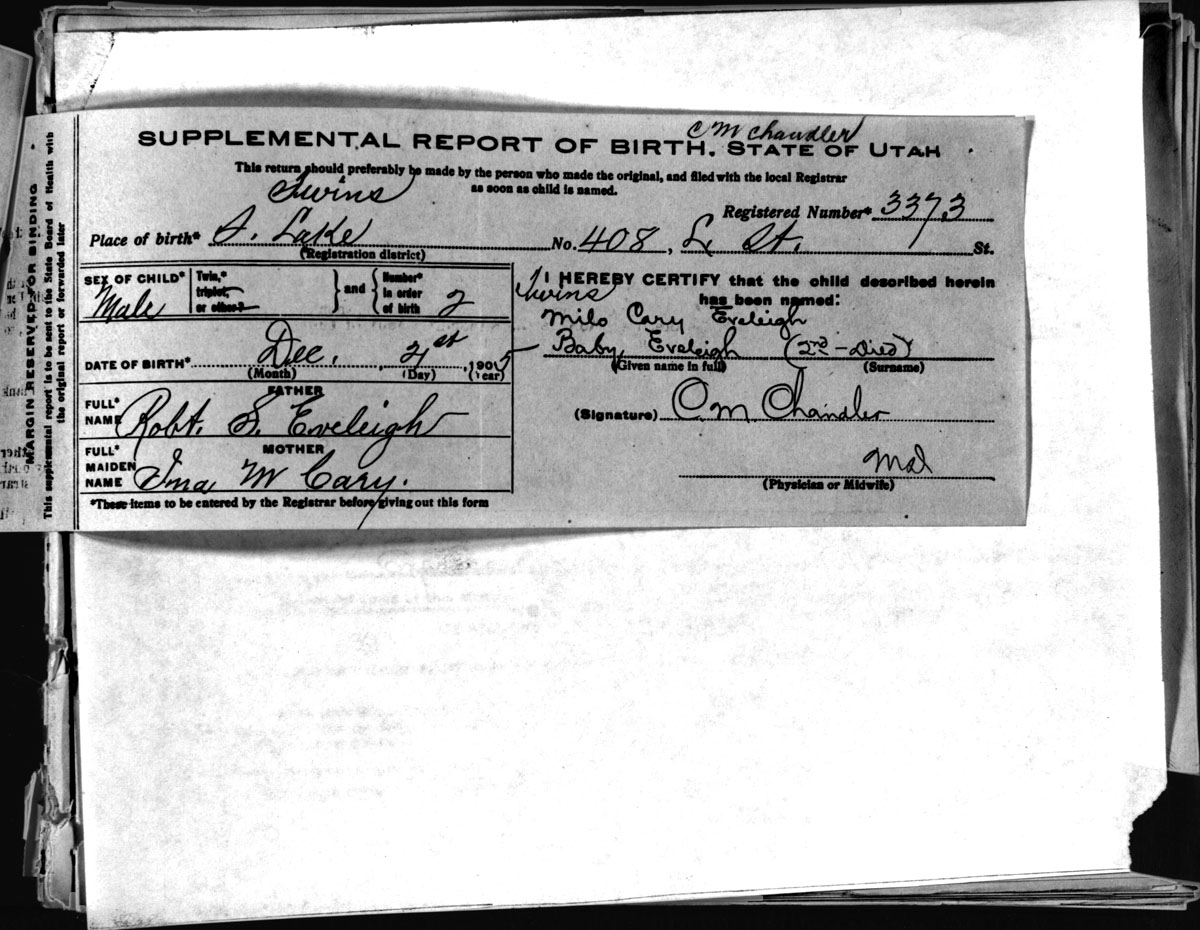 C M Chandler
SUPPLEMENTAL REPORT OF BIRTH. STATE OF UTAH
This return should preferably be made by the person who made the original, and filed with the local Registrar
as soon as child is named.
Twins
Registered Number* 3373
Place of birth* S. Lake No. 408, L. St. St.
(Registration district)
SEX OF CHILD* Male
Twin,* triplet, or other? } and { Number* in order of birth 2
DATE OF BIRTH* Dec. , 21st , 1905
(Month) (Day) (Year)
FATHER
FULL* NAME Robt. S. Eveleigh
MOTHER
FULL* MAIDEN NAME Ina M Cary.
*These items to be entered by the Registrar before giving out this form
I HEREBY CERTIFY that the child described herein
has been named:
Twins
Milo Cary Eveleigh
Baby Eveleigh (2nd - Died)
(Given name in full) (Surname)
(Signature) C M Chandler
Md
(Physician or Midwife)
MARGIN RESERVED FOR BINDING
This supplemental report is to be sent to the State Board of Health with
the original report or forwarded later